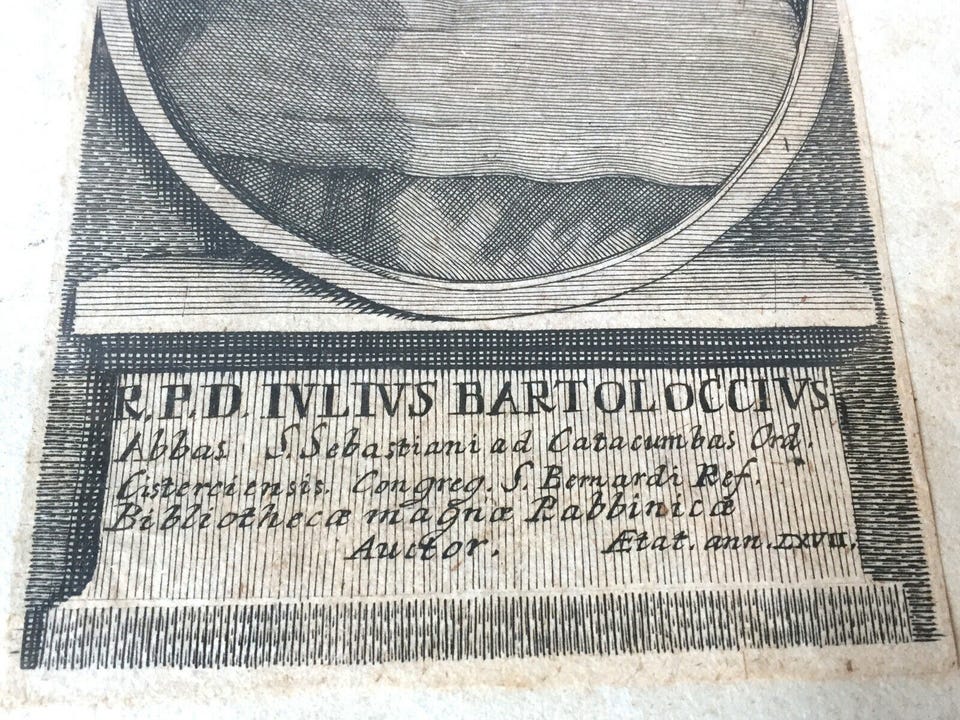 R.P.D. IVLIVS BARTOLOCCIVS
Abbas S. Sebastiani ad Catacumbas Ord.
Cisterciensis. Congreg. S. Bernardi Ref.
Bibliothecæ magnæ Rabbinicæ
Auctor. Ætat. ann. LXVII.